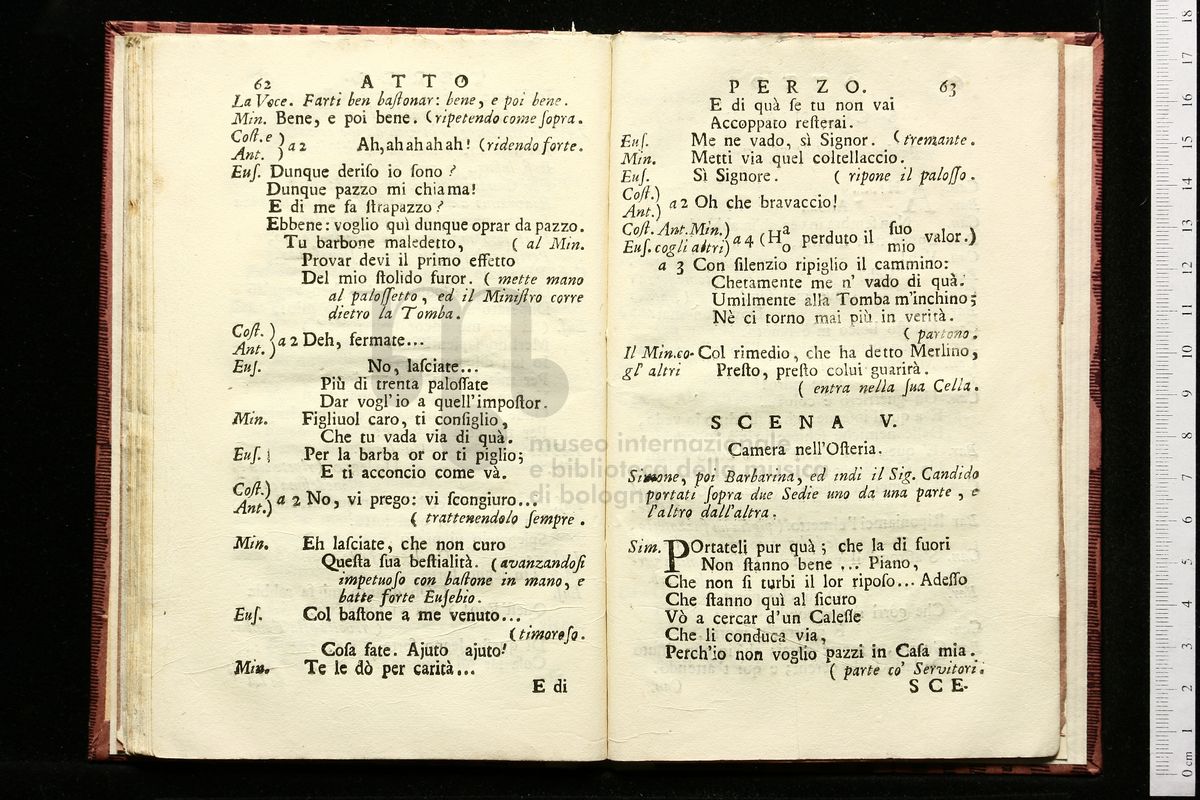 62 ATTO
La Voce. Farti ben baſtonar: bene, e poi bene.
Min. Bene, e poi bene. (ripetendo come ſopra.
Coſt. e
Ant. } a 2 Ah, ah ah ah ah! (ridendo forte.
Euſ. Dunque deriſo io ſono?
Dunque pazzo mi chiama!
E di me fa ſtrapazzo?
Ebbene: voglio quì dunque oprar da pazzo.
Tu barbone maledetto, ( al Min.
Provar devi il primo effetto
Del mio ſtolido furor. ( mette mano
al paloſſetto, ed il Miniſtro corre
dietro la Tomba.
Coſt.
Ant. } a 2 Deh, fermate...
Euſ. No, laſciate...
Più di trenta paloſſate
Dar vogl'io a quell'impoſtor.
Min. Figliuol caro, ti conſiglio,
Che tu vada via di quà.
Euſ. Per la barba or or ti piglio;
E ti acconcio come và.
Coſt.)
Ant.) a 2 No, vi prego: vi ſcongiuro...
( trattenendolo ſempre.
Min. Eh laſciate, che non curo
Queſta ſua beſtialità. (avanzandoſi
impetuoſo con baſtone in mano, e
batte forte Euſebio.
Euſ. Col baſtone a me venuto...
(timoroſo.
Coſa fate. Ajuto ajuto!
Min. Te le dò per carità...
E di
PERZO. 63
E di quà ſe tu non vai
Accoppato reſterai.
Euſ. Me ne vado, sì Signor. (tremante.
Min. Metti via quel coltellaccio.
Euſ. Sì Signore. ( ripone il paloſſo.
Coſt.)
Ant.) a 2 Oh che bravaccio!
Coſt. Ant. Min.)
Euſ. cogli altri) a 4 (Ha/o perduto il ſuo/mio valor.)
a 3 Con ſilenzio ripiglio il cammino:
Chetamente me n' vado di quà.
Umilmente alla Tomba m'inchino;
Nè ci torno mai più in verità.
( partono.
Il Min. co- Col rimedio, che ha detto Merlino,
gl' altri Preſto, preſto colui guarirà.
( entra nella ſua Cella.
SCENA V.
Camera nell'Oſteria.
Simone, poi Barbarina, ed indi il Sig. Candido
portati ſopra due Sedie uno da una parte, e
l'altro dall'altra.
Sim. POrtateli pur quà; che la di fuori
Non ſtanno bene ... Piano,
Che non ſi turbi il lor ripoſo... Adeſſo
Che ſtanno quì al ſicuro
Vò a cercar d'un Caleſſe
Che li conduca via,
Perch'io non voglio pazzi in Caſa mia.
( parte co' Servitori.
SCE-
museo internazionale
e biblioteca della musica
di bologna
0 cm 1 2 3 4 5 6 7 8 9 10 11 12 13 14 15 16 17 18